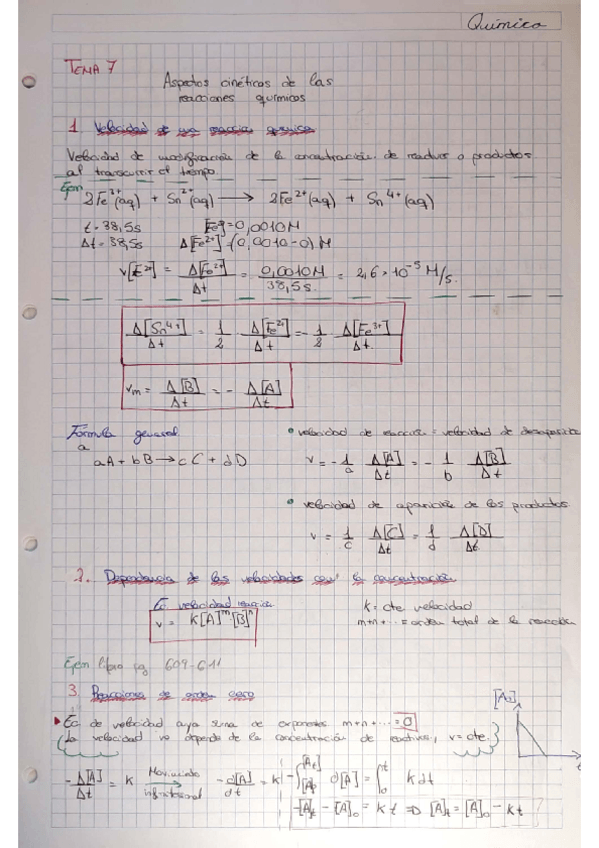 Química
TEMA 7
Aspectos cinéticos de las
reacciones químicas
1. Velocidad de una reacción química
Velocidad de modificación de la concentración de reactivos o productos
al transcurrir el tiempo.
Ejem
2Fe³⁺(aq) + Sn²⁺(aq) → 2Fe²⁺(aq) + Sn⁴⁺(aq)
t = 38,5s [Fe²⁺] = 0,0010M
Δt = 38,5s Δ[Fe²⁺] = (0,0010-0) M
v[Fe²⁺] = Δ[Fe²⁺]/Δt = 0,0010M/38,5s. = 2,6 × 10⁻⁵ M/s.
Δ[Sn⁴⁺]/Δt = 1/2 Δ[Fe²⁺]/Δt = - 1/2 Δ[Fe³⁺]/Δt.
vm = Δ[B]/Δt = - Δ[A]/Δt
Fórmula general
a
aA + bB → cC + dD
• velocidad de reacción = velocidad de desaparición
v = - 1/a Δ[A]/Δt = - 1/b Δ[B]/Δt
• velocidad de aparición de los productos
v = 1/c Δ[C]/Δt = 1/d Δ[D]/Δt
2. Dependencia de las velocidades con la concentración
Ec velocidad reacción
v = K[A]ᵐ [B]ⁿ
K = cte velocidad
m+n+... = orden total de la reacción
Ejem libro pg 609-611
3. Reacciones de orden cero
Ec de velocidad cuya suma de exponentes m+n+... = 0
(la velocidad no depende de la concentración de reactivos, v = cte.)
[A]
t
- Δ[A]/Δt = K Movimiento infinitesimal → - d[A]/dt = K
- ∫ [A]₀ [A]t d[A] = ∫ 0 t K dt
-[A]t - [A]₀ = K t ⇒ [A]t = [A]₀ - K t